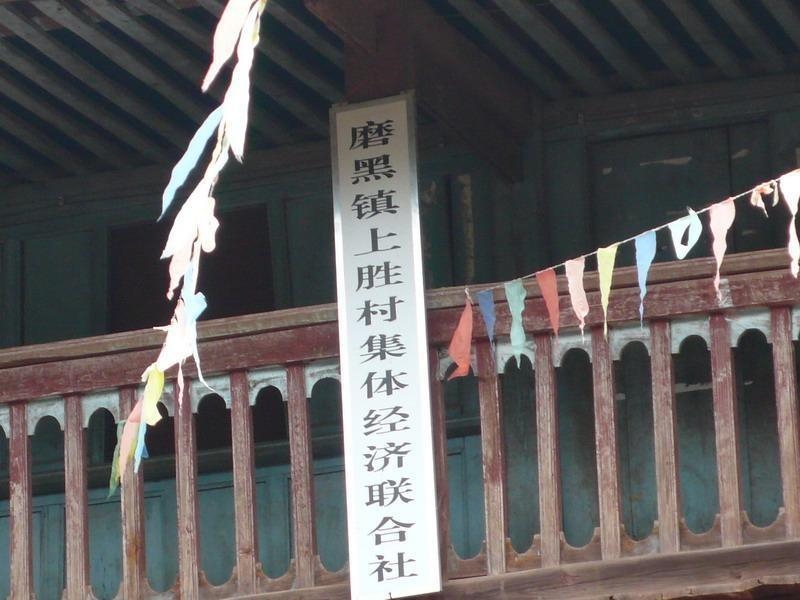 磨黑镇上胜村集体经济联合社